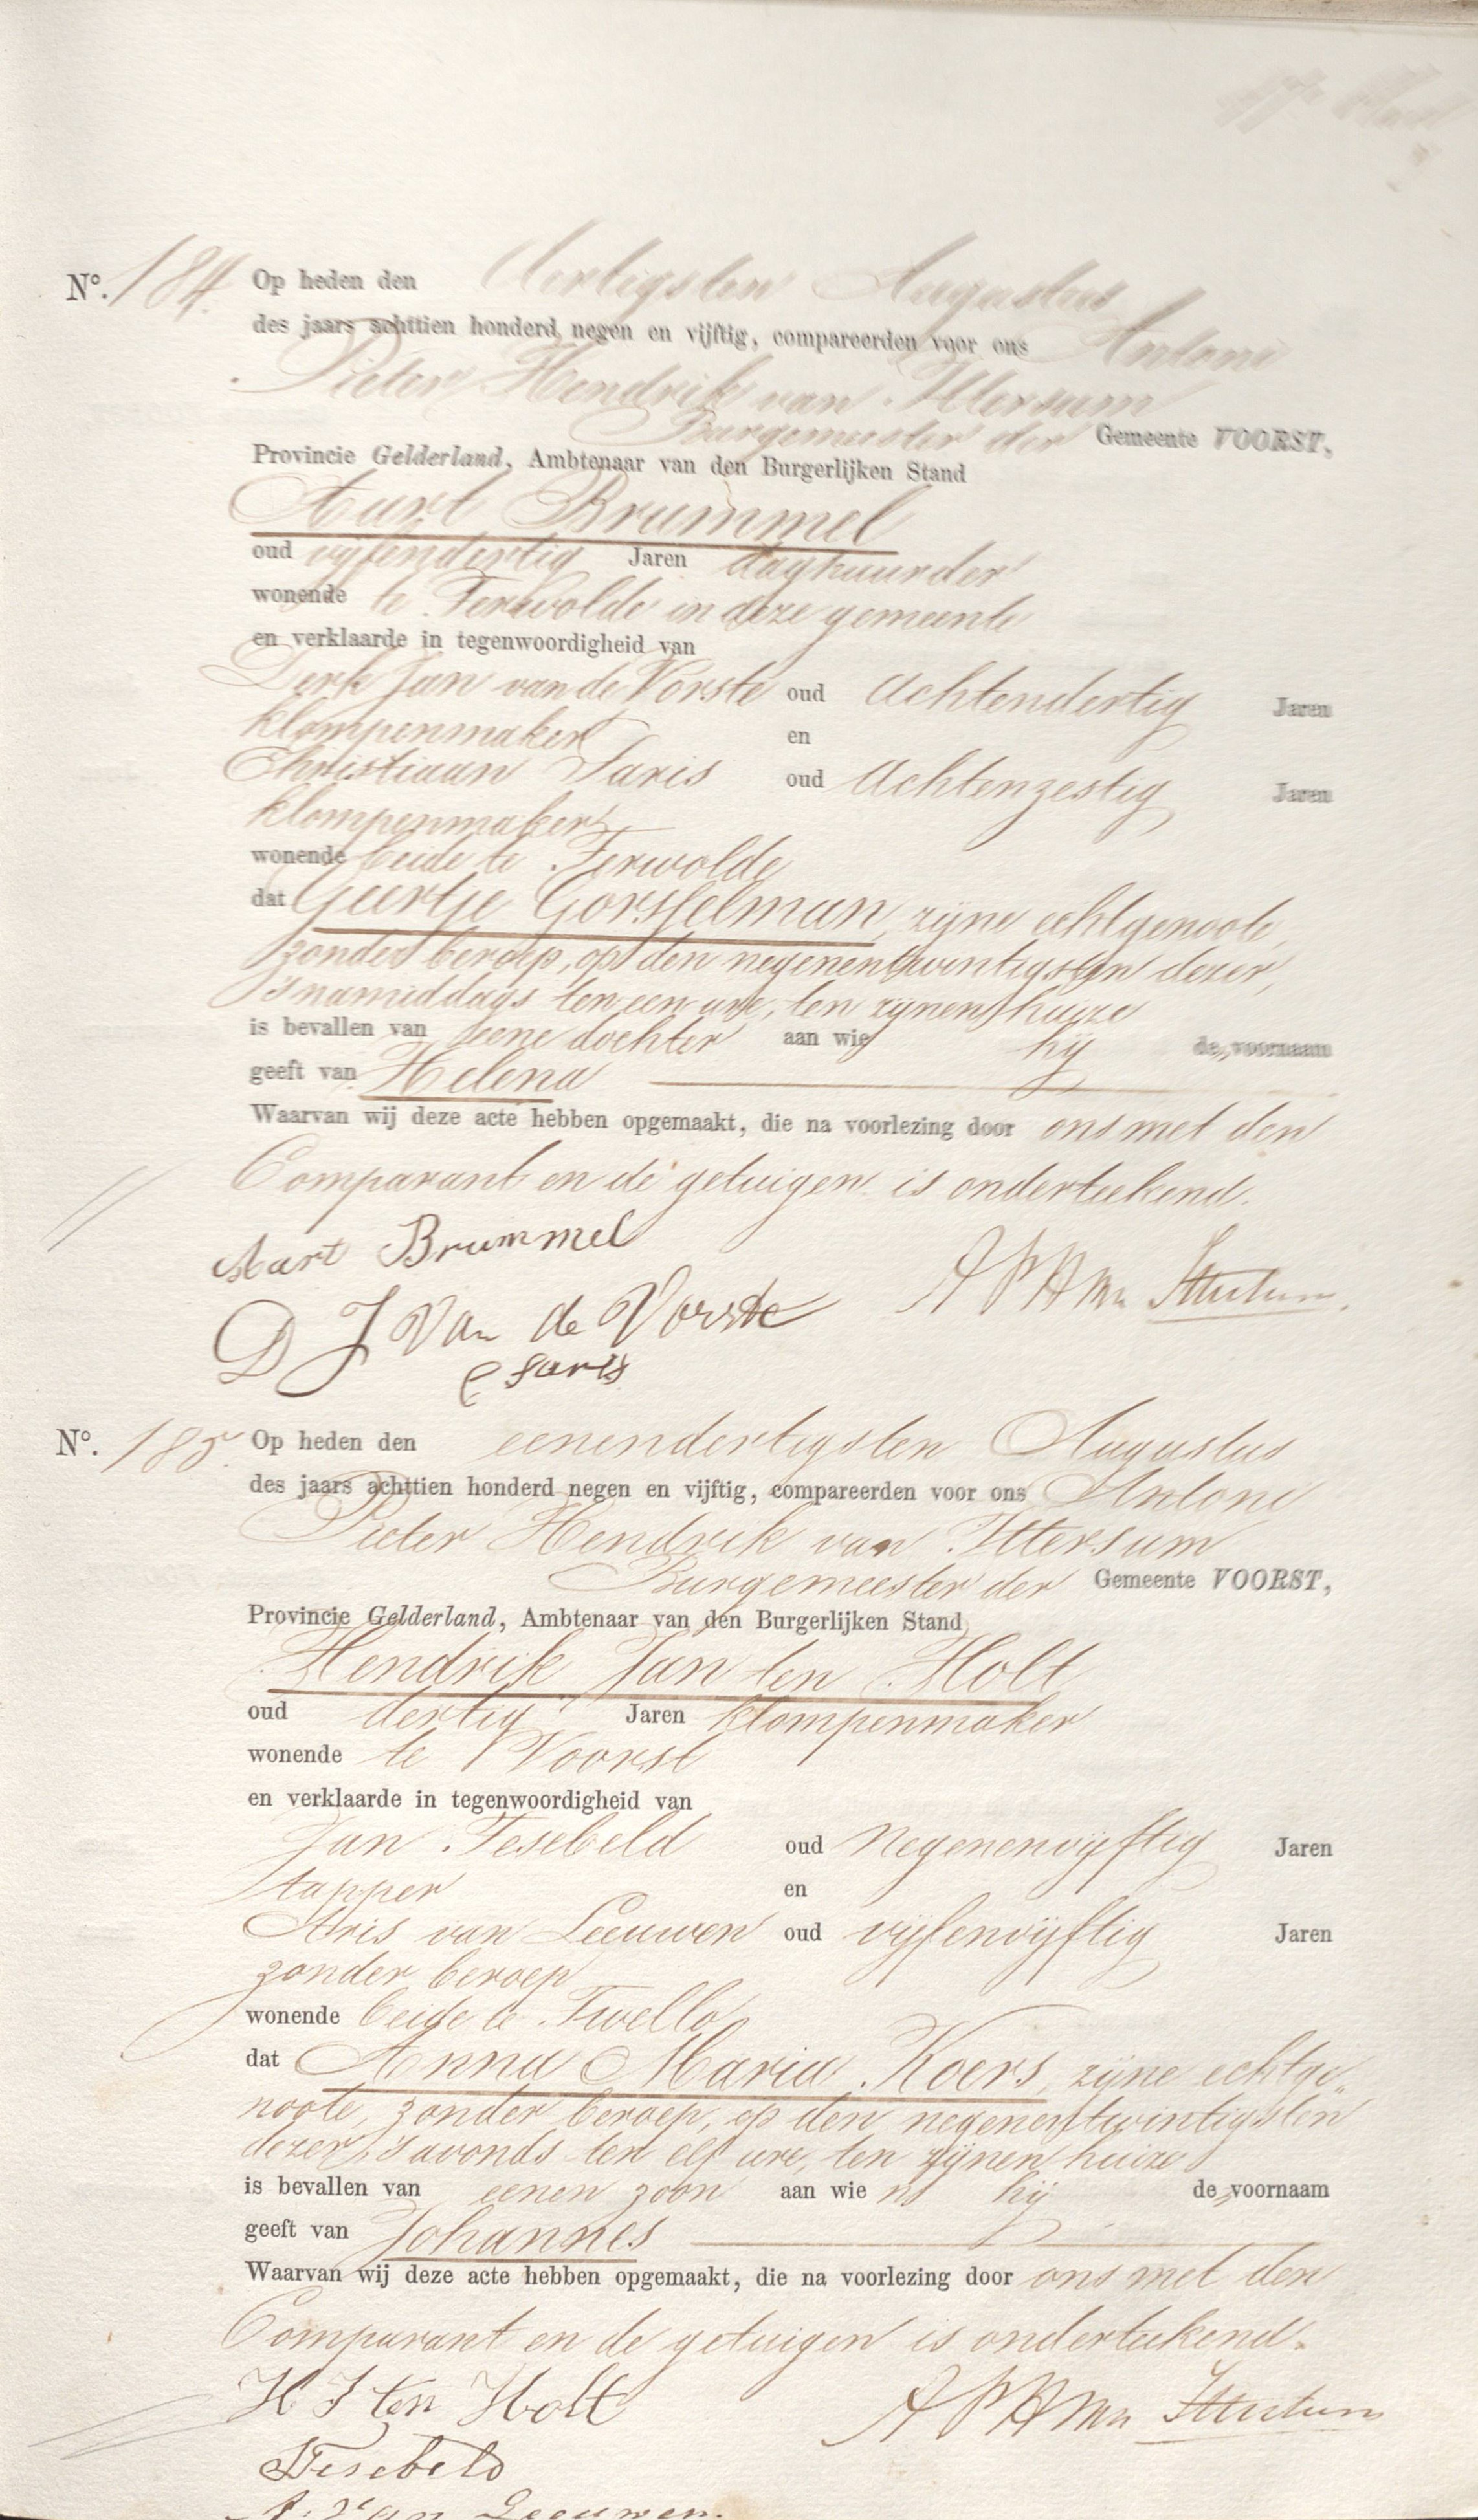 Nº. 184. Op heden den dertigsten Augustus
des jaars achttien honderd negen en vijftig, compareerden voor ons Antoni
Pieter Hendrik van Ittersum
Burgemeester der Gemeente VOORST,
Provincie Gelderland, Ambtenaar van den Burgerlijken Stand
Aart Brummel
oud vijfendertig Jaren daghuurder
wonende te Terwolde in deze gemeente
en verklaarde in tegenwoordigheid van
Derk Jan van de Vorste oud Achtendertig Jaren
klompenmaker en
Christiaan Saris oud Achtenzestig Jaren
klompenmaker
wonende beide te Terwolde
dat Geertje Gorsselman, zijne echtgenoote,
zonder beroep, op den negenentwintigsten dezer,
'snamiddags ten een ure, ten zijnen huize
is bevallen van eene dochter aan wie hij de voornaam
geeft van Helena
Waarvan wij deze acte hebben opgemaakt, die na voorlezing door ons met den
Comparant en de getuigen is onderteekend.
Aart Brummel
APHvan Ittersum.
D J Van de Vorste
C Saris
Nº. 185. Op heden den eenendertigsten Augustus
des jaars achttien honderd negen en vijftig, compareerden voor ons Antoni
Pieter Hendrik van Ittersum
Burgemeester der Gemeente VOORST,
Provincie Gelderland, Ambtenaar van den Burgerlijken Stand
Hendrik Jan ten Holt
oud dertig Jaren klompenmaker
wonende te Voorst
en verklaarde in tegenwoordigheid van
Jan Tesebeld oud Negenenvijftig Jaren
tapper en
Aris van Leeuwen oud vijfenvijftig Jaren
zonder beroep
wonende beide te Twello
dat Anna Maria Koers, zijne echtge„
noote, zonder beroep, op den negenentwintigsten
dezer, 's avonds ten elf ure, ten zijnen huize
is bevallen van eenen zoon aan wie n hij de voornaam
geeft van Johannes
Waarvan wij deze acte hebben opgemaakt, die na voorlezing door ons met den
Comparant en de getuigen is onderteekend.
H J ten Holt
APHvan Ittersum
J Tesebeld
A. van Leeuwen.